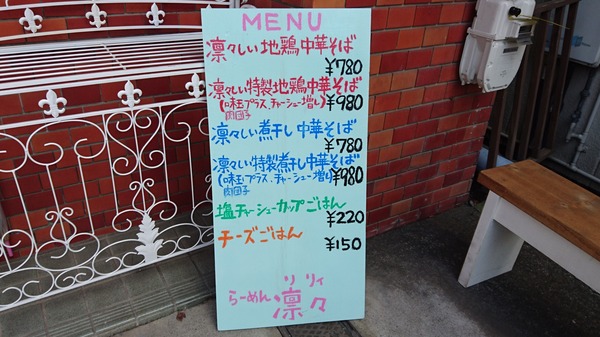 MENU
凛々しい地鶏中華そば
¥780
凛々しい特製地鶏中華そば
(味玉プラス、チャーシュー増し)¥980
肉団子
凛々しい煮干し中華そば
¥780
凛々しい特製煮干し中華そば
(味玉プラス、チャーシュー増し)¥980
肉団子
塩チャーシューカップごはん
¥220
チーズごはん
¥150
リリィ
らーめん 凛々